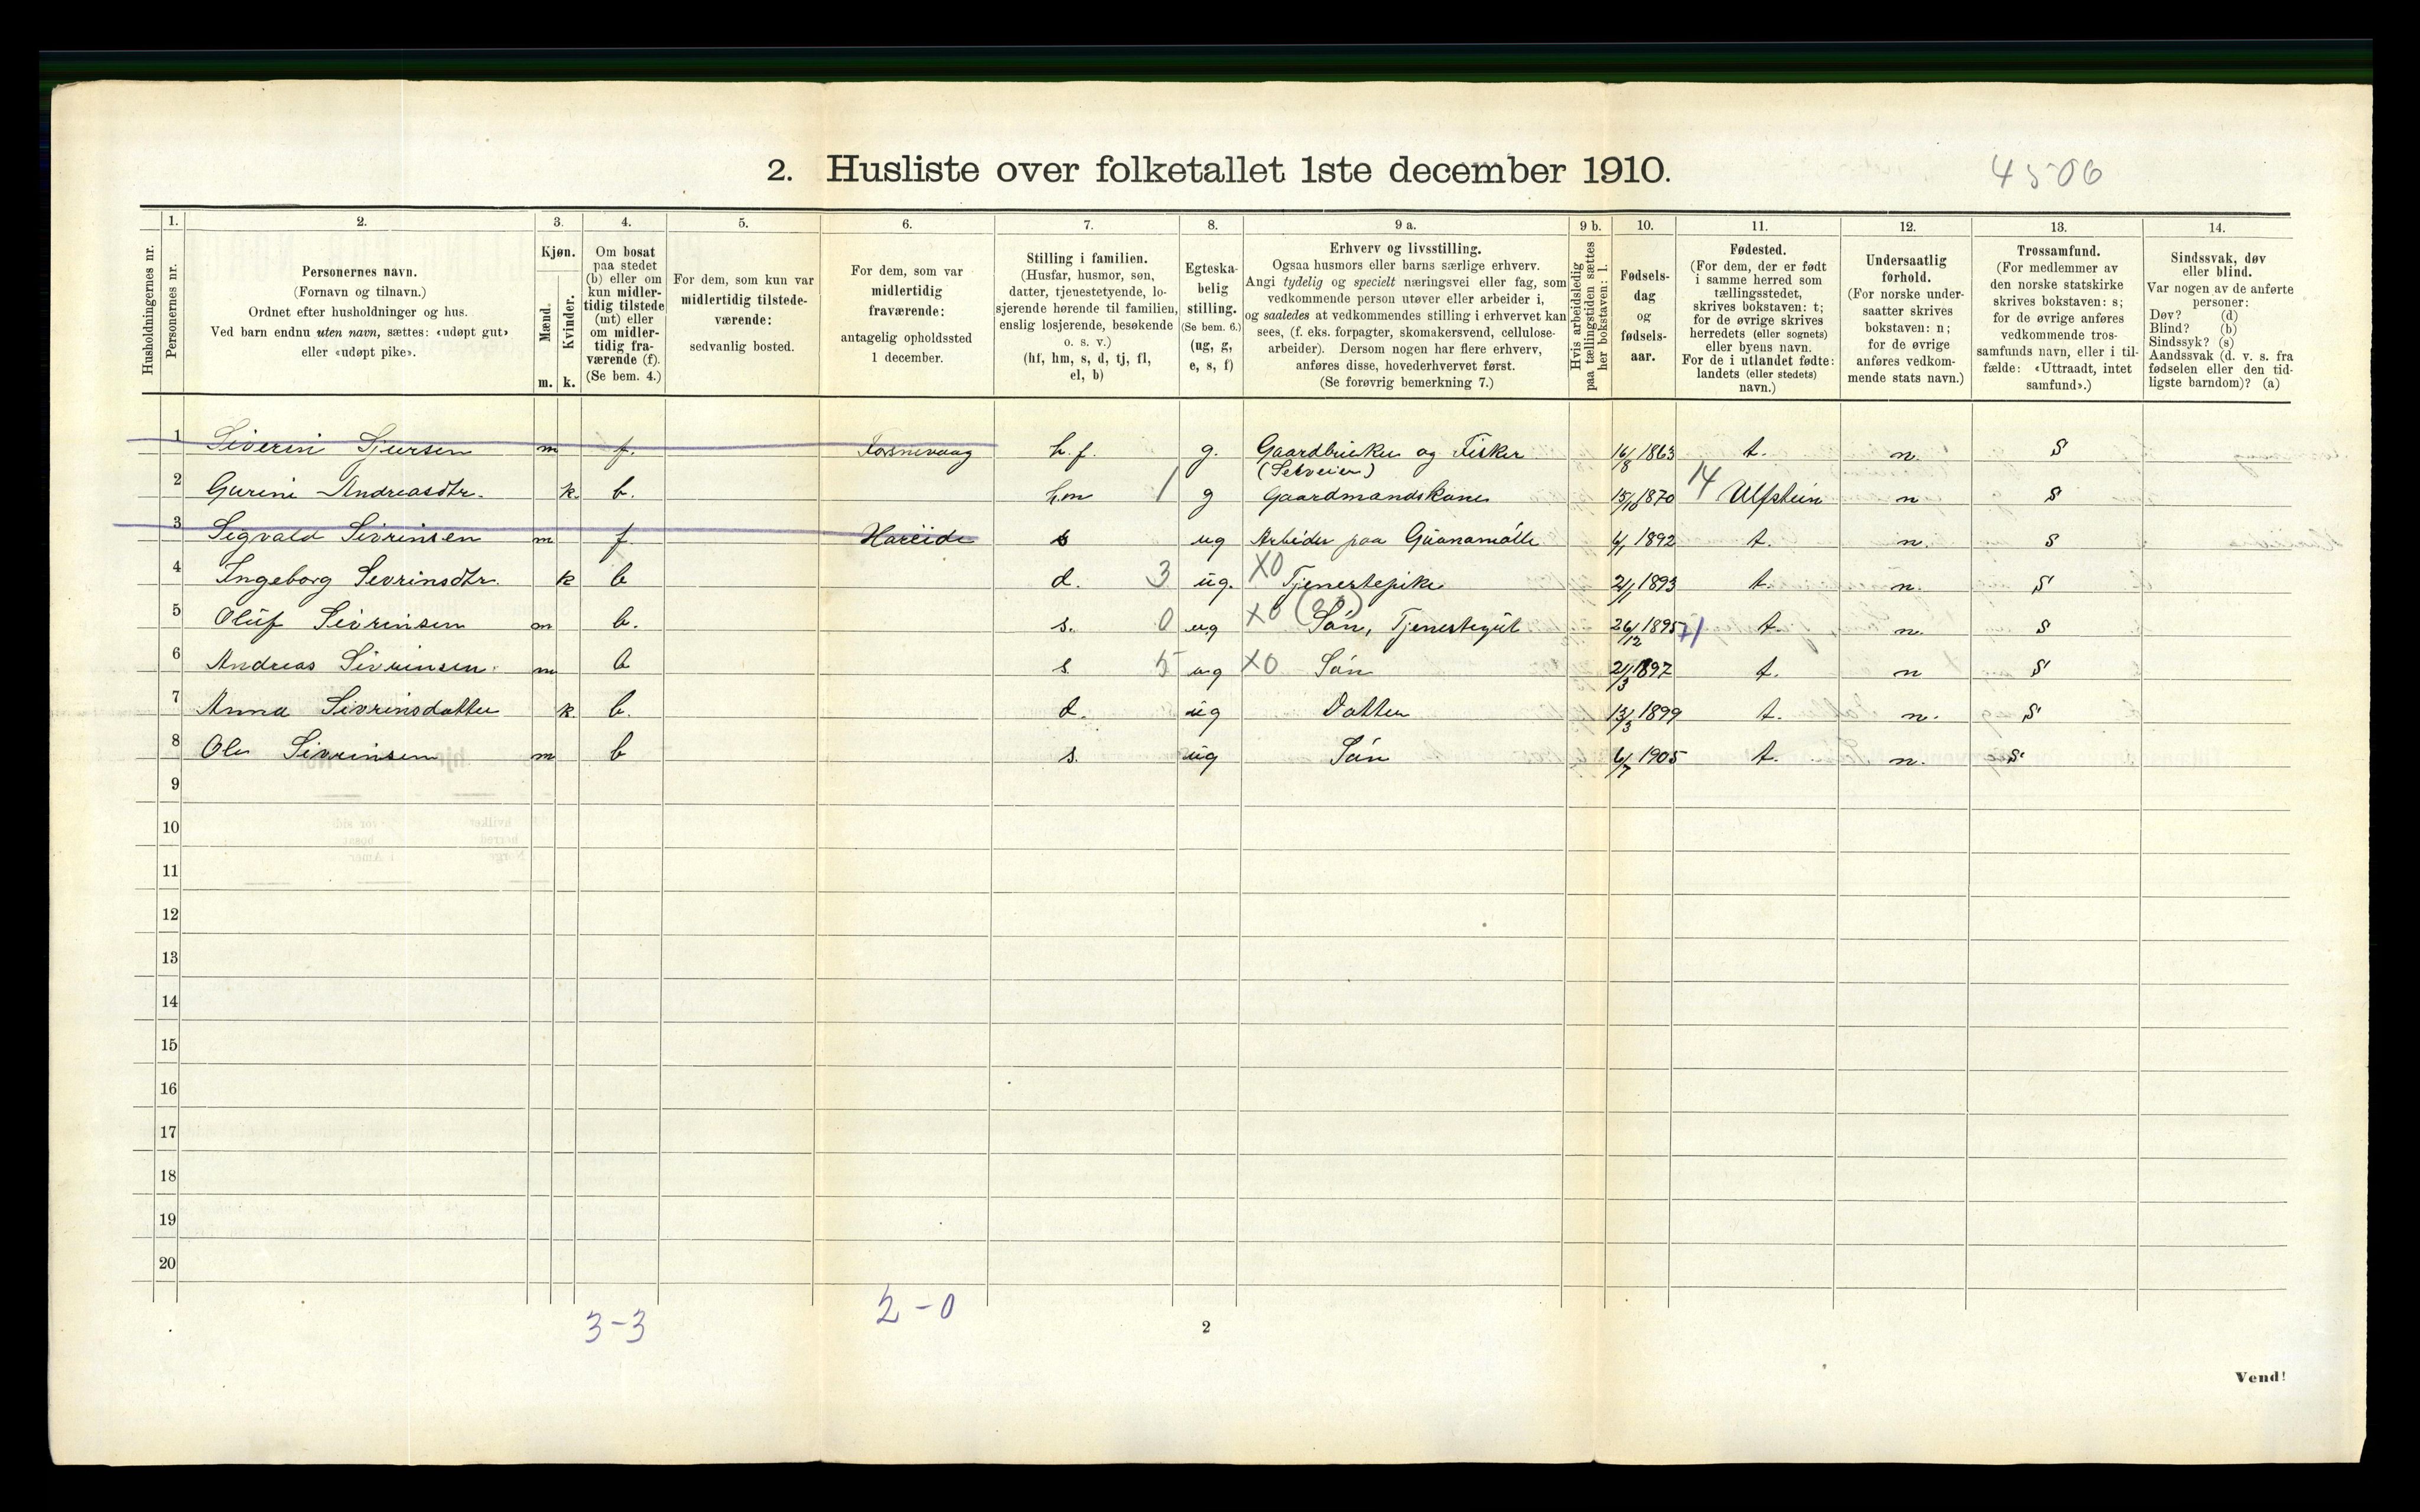 2. Husliste over folketallet 1ste december 1910.
4506
Husholdningernes nr.
1. Personernes nr.
2. Personernes navn. (Fornavn og tilnavn.) Ordnet efter husholdninger og hus. Ved barn endnu uten navn, sættes: «udøpt gut» eller «udøpt pike».
3. Kjøn. Mænd. m. Kvinder. k.
4. Om bosat paa stedet (b) eller om kun midlertidig tilstede (mt) eller om midlertidig fraværende (f). (Se bem. 4.)
5. For dem, som kun var midlertidig tilstedeværende: sedvanlig bosted.
6. For dem, som var midlertidig fraværende: antagelig opholdssted 1 december.
7. Stilling i familien. (Husfar, husmor, søn, datter, tjenestetyende, losjerende hørende til familien, enslig losjerende, besøkende o. s. v.) (hf, hm, s, d, tj, fl, el, b)
8. Egteskabelig stilling. (Se bem. 6.) (ug, g, e, s, f)
9 a. Erhverv og livsstilling. Ogsaa husmors eller barns særlige erhverv. Angi tydelig og specielt næringsvei eller fag, som vedkommende person utøver eller arbeider i, og saaledes at vedkommendes stilling i erhvervet kan sees, (f. eks. forpagter, skomakersvend, cellulosearbeider). Dersom nogen har flere erhverv, anføres disse, hovederhvervet først. (Se forøvrig bemerkning 7.)
9 b. Hvis arbeidsledig paa tællingstiden sættes her bokstaven: l.
10. Fødselsdag og fødselsaar.
11. Fødested. (For dem, der er født i samme herred som tællingsstedet, skrives bokstaven: t; for de øvrige skrives herredets (eller sognets) eller byens navn. For de i utlandet fødte: landets (eller stedets) navn.)
12. Undersaatlig forhold. (For norske undersaatter skrives bokstaven: n; for de øvrige anføres vedkommende stats navn.)
13. Trossamfund. (For medlemmer av den norske statskirke skrives bokstaven: s; for de øvrige anføres vedkommende trossamfunds navn, eller i tilfælde: «Uttraadt, intet samfund».)
14. Sindssvak, døv eller blind. Var nogen av de anførte personer: Døv? (d) Blind? (b) Sindssyk? (s) Aandssvak (d. v. s. fra fødselen eller den tidligste barndom)? (a)
1 Siverin Sjursen m f. Fosnevaag h.f. g. Gaardbruker og Fisker (Selveier) 16/8 1863 t. n. S
2 Gurine Andreasdtr. k. b. h.m 1 g Gaardmandskone 15/10 1870 14 Ulfstein n S
3 Sigvald Sivrinsen m f Hareide s ug Arbeider paa Guanamølle 6/1 1892 t. n. S
4 Ingeborg Sevrinsdtr. k b d. 3 ug. XO Tjenestepike 21/1 1893 t. n. S
5 Oluf Sivrinsen m b. s. 0 ug XO Søn, Tjenestegut 26/12 1895 t. n. S
6 Andreas Sivrinsen m b s 5 ug XO Søn 21/3 1897 t. n S
7 Anna Sivrinsdatter k. b. d. ug Datter 13/3 1899 t. n. S
8 Ole Sivrinsen m b s. ug Søn 6/7 1905 t. n. S
9
10
11
12
13
14
15
16
17
18
19
20
3-3
2-0
2
Vend!